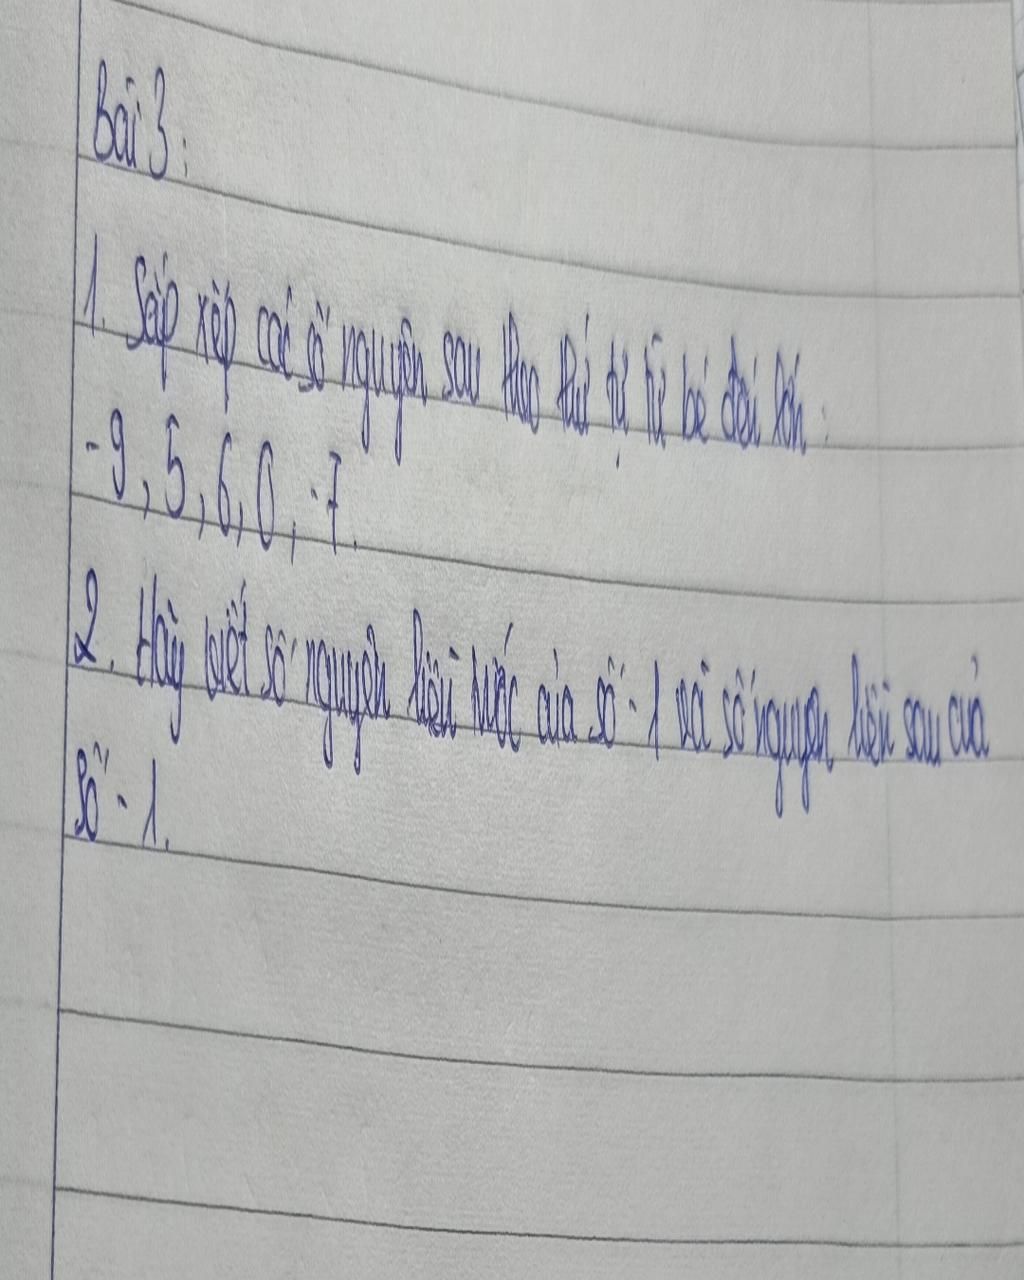 Bài 3:
1. Sắp xếp các số nguyên sau theo thứ tự từ bé đến lớn:
-9, 5, 6, 0, -7.
2. Hãy viết số nguyên liền trước của số -1 và số nguyên liền sau của
số -1.